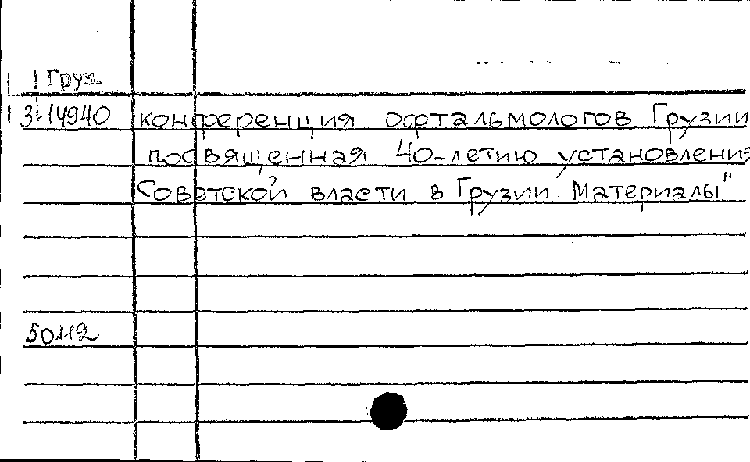 Груз
3-14940 конференция офтальмологов Грузии
посвященная 40-летию установления
Советской власти в Грузии. Материалы"
50112